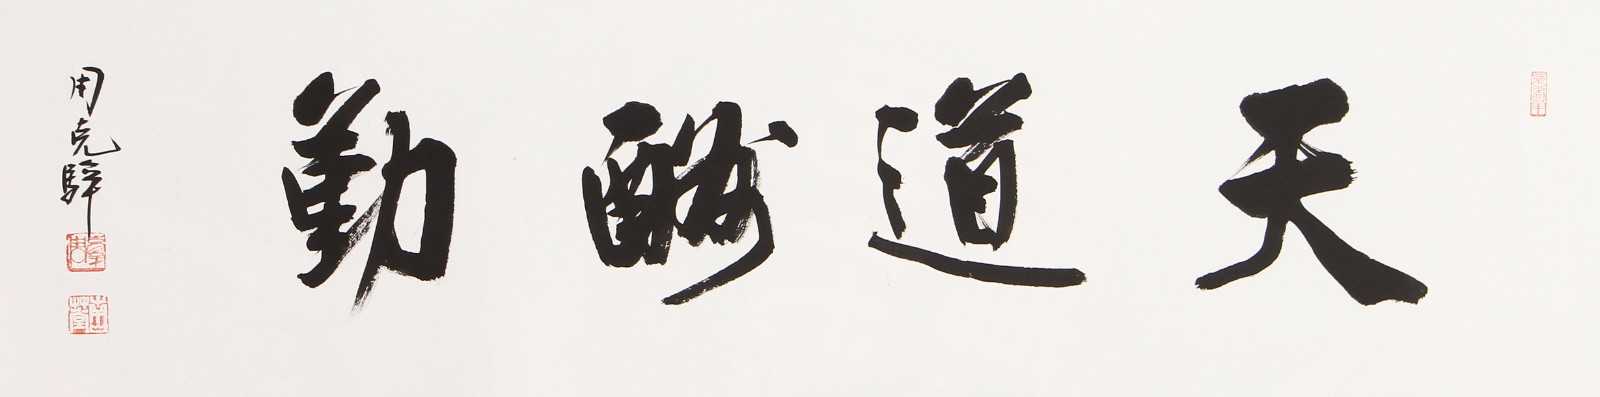 天道酬勤
周克